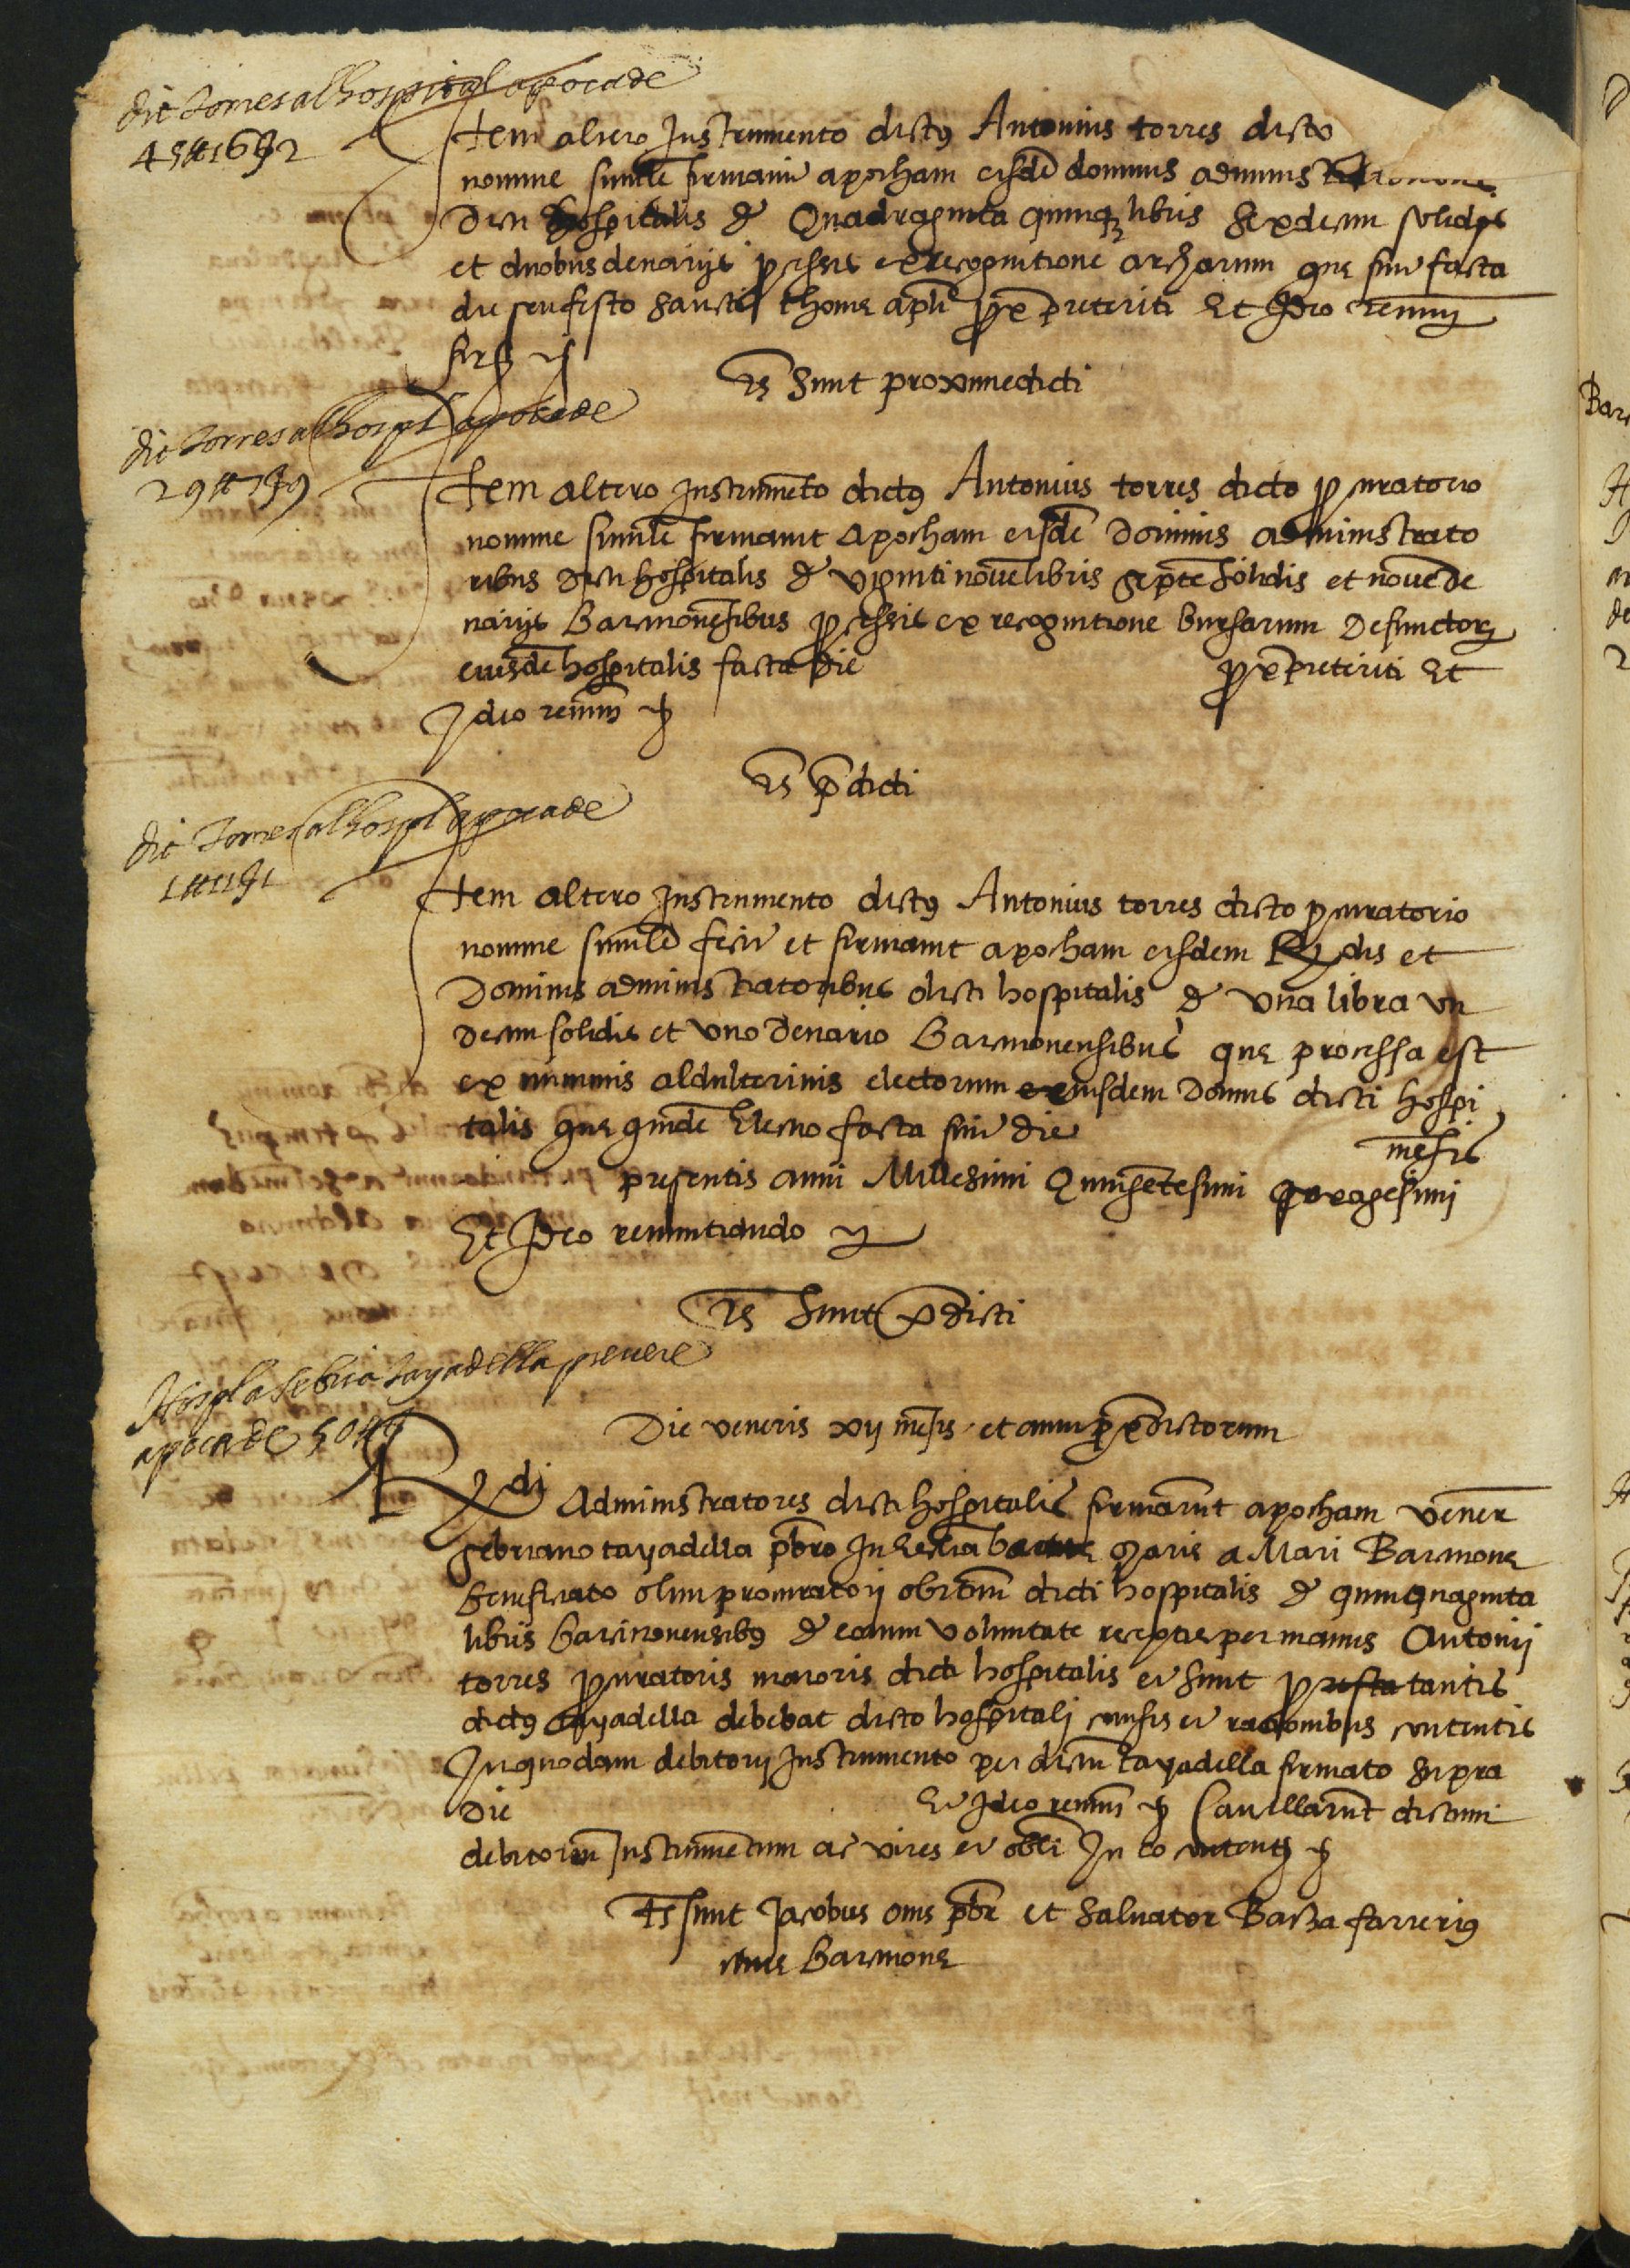 dit torres al hospital apoca de
45 ll 16 ß 2
Item altero Instrumento dictus Antonius torres dicto
nomine simile firmavit apocham eisde dominis administ
dicti hospitalis de Quadraginta quinq libris Sexdecim solidis
et duobus denariis processis ex recognitione archarum que fuit facta
die seu festo Sancti thome apli prox preteriti Et Ideo renun
fir
Ts Sunt proxime dicti
dit torres al hospl apoca de
29 ll 7 ß 9
Item altero Instrumeto dictus Antonius torres dicto procuratorio
nomine simile firmavit apocham eisde Dominis administrato
ribus dicti hospitalis de viginti novelibris septe solidis et novede
nariis Barcinonesibus processis ex recognitione bursarum Defunctor
eiusde hospitalis facta Die prox preteriti Et
Ideo renun
Ts pdicti
dit torres al hospl apoca de
1 ll 11 ß 1
Item altero Instrumento dictus Antonius torres dicto procuratorio
nomine simile fecit et firmavit apocham eisdem Rdis et
Dominis administratoribus dicti hospitalis de una libra un
decim solidis et uno Denario Barcinonensibus que processa est
ex nummis aldulterinis electorum eiusdem Domus dicti hospi
talis que quide Electio facta fuit die mesis
presentis anni Millesimi Quingetesimi sexagesimi
Et Ideo renuntiando
Ts Sunt pdicti
Hospl a Sebria tayadella prevere
apoca de 50 ll
Die veneris xij mesis et anni predictorum
Rdi Administratores dicti hospitalis firmarunt apocham vener
Sebriano tayadella pbro In Ecclia beate Marie a Mari Barcinone
beneficiato olim procuratori obituu dicti hospitalis de quinquaginta
libris barcinonensibus de eorum voluntate receptis per manus Antonii
torres procuratoris maioris dicti hospitalis et sunt pro tantis
dictus tayadella debebat dicto hospitali causis et rationibus contentis
In quodam debitorij Instrumento per dictu tayadella firmato supra
Die Et Ideo renun Cancellarunt dictum
debitoriu Instrumetum ac vires et obli In eo content
Ts sunt Jacobus oms pbr et Salvator Bacza farrerius
cives Barcinone